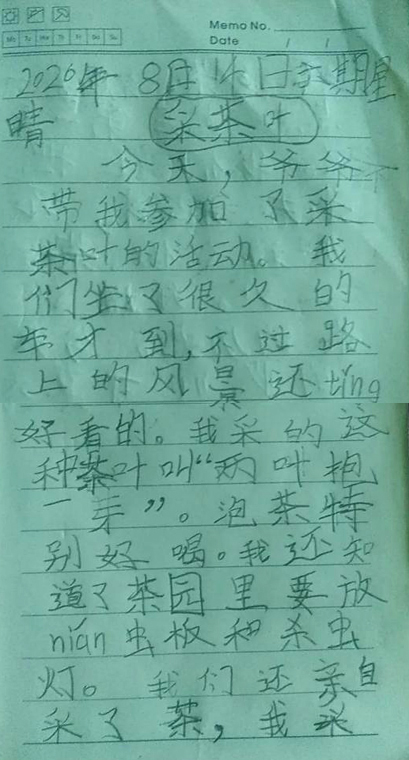 Memo No.
Mo Tu We Th Fr Sa Su
Date / /
2020年 8月14日 星期
晴 采茶叶
今天，爷爷
带我参加了采
茶叶的活动。我
们坐了很久的
车才到，不过路
上的风景还tǐng
好看的。我采的这
种茶叶叫“两叶抱
一芽”。泡茶特
别好喝。我还知
道了茶园里要放
nián虫板和杀虫
灯。我们还亲自
采了茶，我采